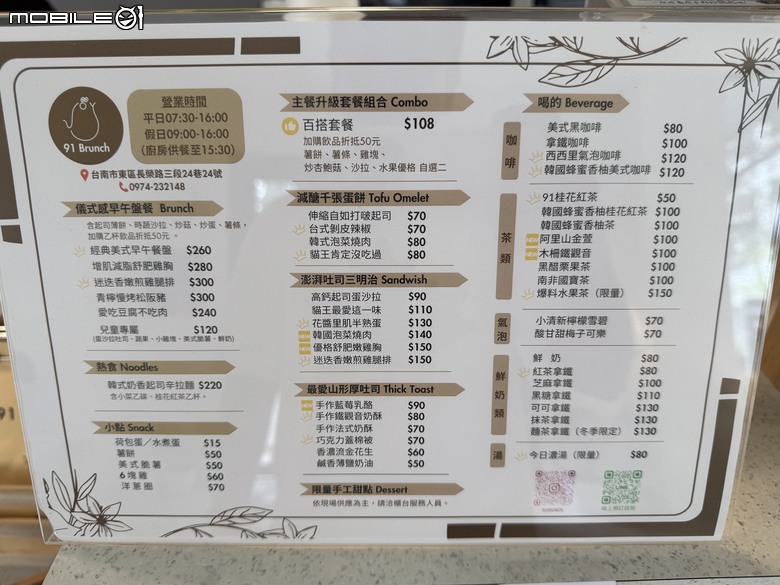 MOBILE01
91 Brunch
營業時間
平日07:30-16:00
假日09:00-16:00
(廚房供餐至15:30)
台南市東區長榮路三段24巷24號
0974-232148
儀式感早午盤餐 Brunch
含起司薄餅、時蔬沙拉、炒菇、炒蛋、薯條,
加購乙杯飲品折抵50元。
經典美式早午餐盤 $260
增肌減脂舒肥雞胸 $280
迷迭香嫩煎雞腿排 $300
青檸慢烤松阪豬 $300
愛吃豆腐不吃肉 $240
兒童專屬 $120
(蛋沙拉吐司、蔬果、小雞塊、美式脆薯、鮮奶)
熱食 Noodles
韓式奶香起司辛拉麵 $220
含小菜乙碟、桂花紅茶乙杯。
小點 Snack
荷包蛋/水煮蛋 $15
薯餅 $50
美式脆薯 $50
6塊雞 $60
洋蔥圈 $70
主餐升級套餐組合 Combo
百搭套餐 $108
加購飲品折抵50元
薯餅、薯條、雞塊、
炒杏鮑菇、沙拉、水果優格 自選二
減醣千張蛋餅 Tofu Omelet
伸縮自如打啵起司 $70
台式剝皮辣椒 $70
韓式泡菜燒肉 $80
貓王肯定沒吃過 $80
澎湃吐司三明治 Sandwish
高鈣起司蛋沙拉 $90
貓王最愛這一味 $110
花醬里肌半熟蛋 $130
韓國泡菜燒肉 $140
優格舒肥嫩雞胸 $150
迷迭香嫩煎雞腿排 $150
最愛山形厚吐司 Thick Toast
手作藍莓乳酪 $90
手作鐵觀音奶酥 $80
手作法式奶酥 $70
巧克力蓋棉被 $70
香濃流金花生 $60
鹹香薄鹽奶油 $50
限量手工甜點 Dessert
依現場供應為主,請洽櫃台服務人員。
喝的 Beverage
咖啡
美式黑咖啡 $80
拿鐵咖啡 $100
西西里氣泡咖啡 $120
韓國蜂蜜香柚美式咖啡 $120
茶類
91桂花紅茶 $50
韓國蜂蜜香柚桂花紅茶 $100
韓國蜂蜜香柚茶 $100
阿里山金萱 $100
木柵鐵觀音 $100
黑醋栗果茶 $100
南非國寶茶 $100
爆料水果茶(限量) $150
氣泡
小清新檸檬雪碧 $70
酸甘甜梅子可樂 $70
鮮奶類
鮮奶 $80
紅茶拿鐵 $80
芝麻拿鐵 $100
黑糖拿鐵 $110
可可拿鐵 $130
抹茶拿鐵 $130
麵茶拿鐵(冬季限定) $130
湯
今日濃湯(限量) $80
LINE
線上預訂自取